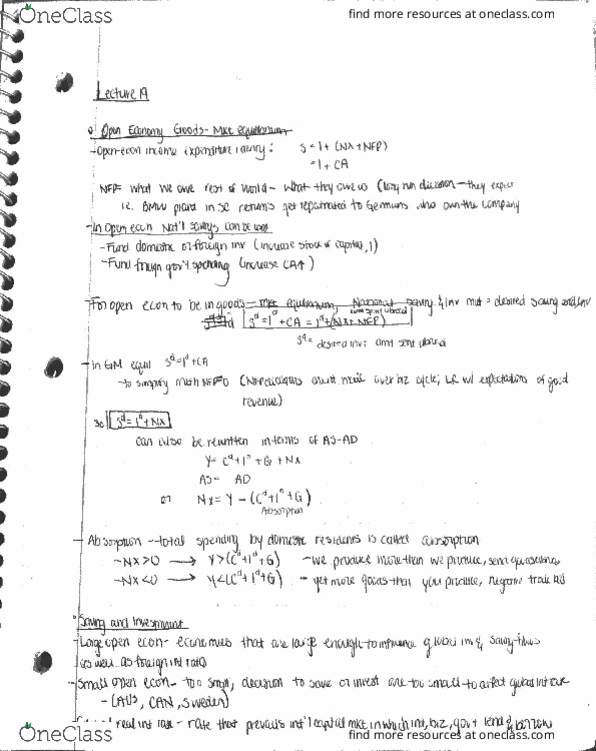 OneClass
find more resources at oneclass.com
Lecture 19
Open Economy Goods-Mkt equilibrium
-Open-econ income expenditure identity: S = I + (NX + NFP)
= I + CA
NFP = what we owe rest of world - what they owe us (long run decision - they expect
ie. BMW plant in SC returns get repatriated to Germans who own the company
-In Open econ Nat'l savings can be used
-Fund domestic or foreign inv (increase stock of capital, I)
-Fund foreign gov't spending (increase CA↑)
-For open econ to be in goods-mkt equilibrium, National saving & inv must = desired saving and inv
Sᵈ = Iᵈ + CA = Iᵈ + (NX + NFP)
Sᵈ = desired inv + amt sent abroad
-In G/M equil Sᵈ = Iᵈ + CA
-to simplify math NFP=0 (NFP decisions aren't made over biz cycle; LR w/ expectations of good
revenue)
so Sᵈ = Iᵈ + NX
Can also be rewritten in terms of AS-AD
Y = Cᵈ + Iᵈ + G + NX
AS = AD
or NX = Y - (Cᵈ + Iᵈ + G)
Absorption
-Absorption - total spending by domestic residents is called absorption
-NX>0 → Y>(Cᵈ+Iᵈ+G) -we produce more than we produce, send
-NX<0 → Y<(Cᵈ+Iᵈ+G) - get more goods that you produce, negative trade bal
Saving and Investment
-Large open econ- economies that are large enough to influence global inv & saving flows
as well as foreign int rates
-Small open econ- too small; decision to save or invest are too small to affect global int rate
-(AUS, CAN, Sweden)
real int rate - rate that prevails int'l capital mkt in which inv, biz, gov't lend & borrow
OneClass
find more resources at oneclass.com